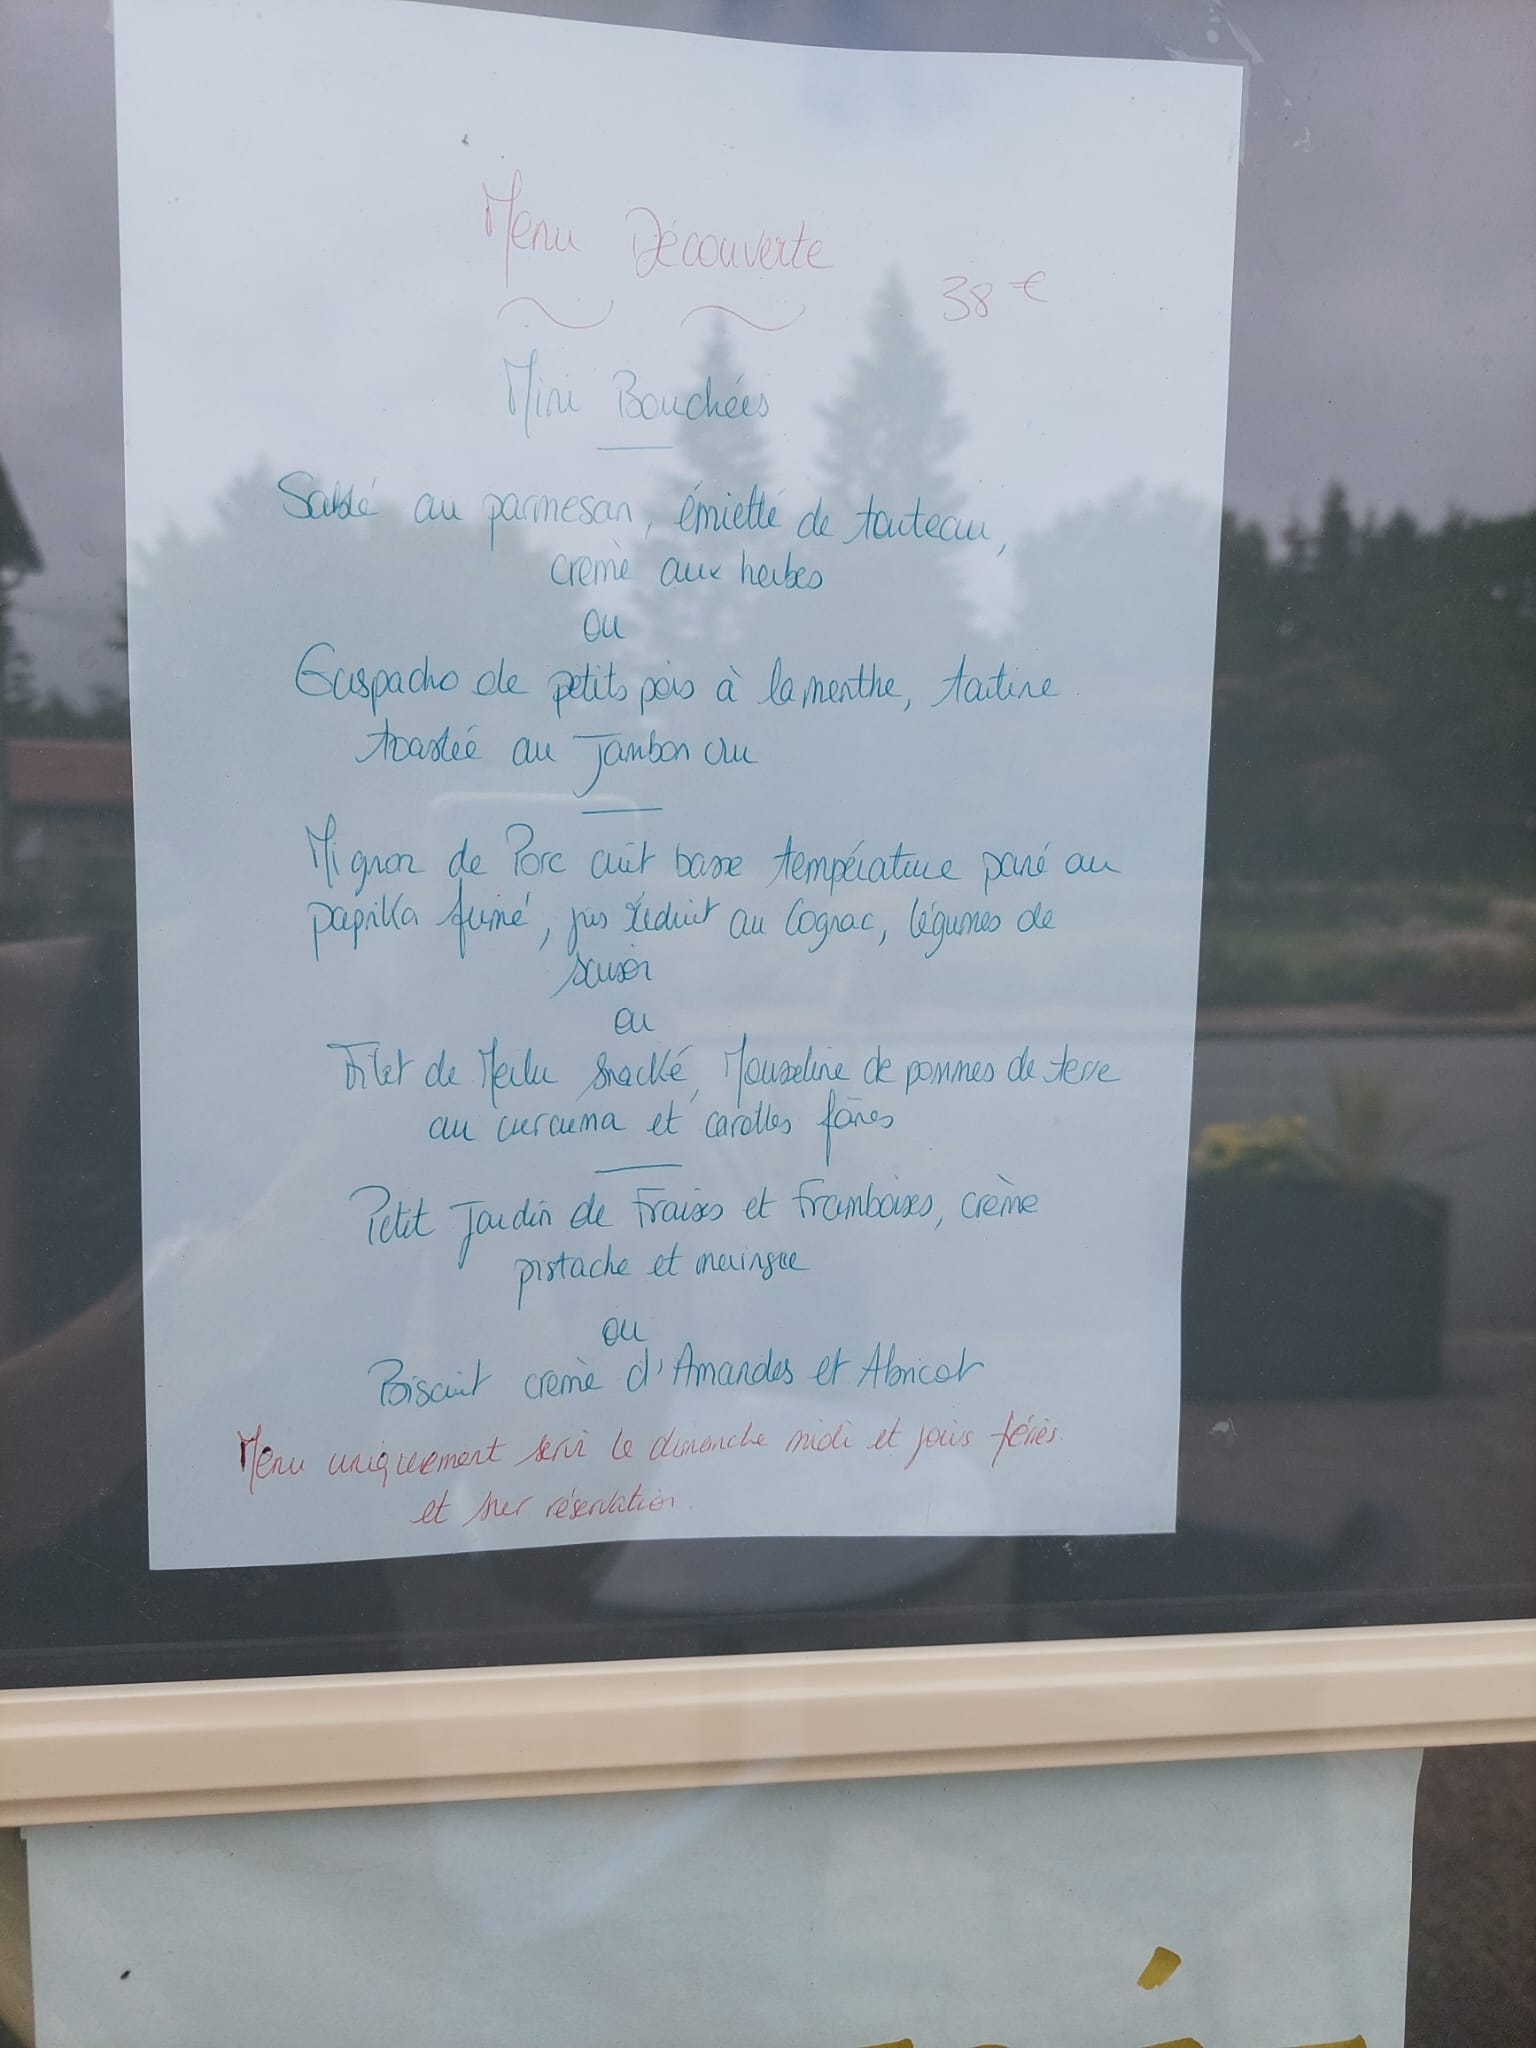 Menu Découverte
38 €
Mini Bouchées
Sablé au parmesan, émietté de tourteau,
creme aux herbes
ou
Gaspacho de petits pois à la menthe, tartine
toastée au Jambon cru
Mignon de Porc cuit basse température pané au
paprika fumé, jus réduit au Cognac, légumes de
saison
ou
Filet de Merlu snacké, Mousseline de pommes de terre
au curcuma et carottes fânes
Petit Jardin de Fraises et Framboises, crème
pistache et meringue
ou
Biscuit crème d'Amandes et Abricot
Menu uniquement servi le dimanche midi et jours fériés.
et sur réservation.